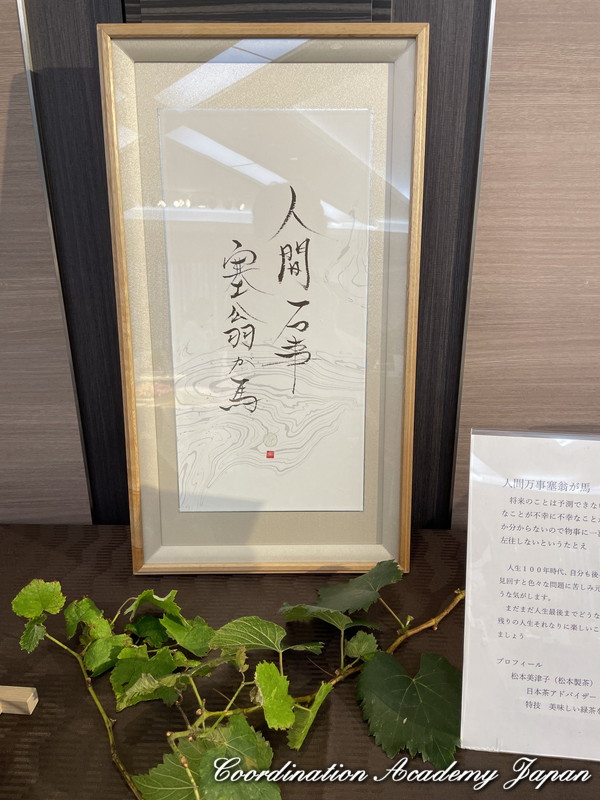 人間万事
塞翁が馬
人間万事塞翁が馬
将来のことは予測できない
なことが不幸に不幸なこと
か分からないので物事に一
左往しないというたとえ
人生100年時代、自分も後
見回すと色々な問題に苦しみ元
うな気がします。
まだまだ人生最後までどうな
残りの人生それなりに楽しいこ
ましょう
プロフィール
松本美津子(松本製茶)
日本茶アドバイザー
特技 美味しい緑茶を
Coordination Academy Japan